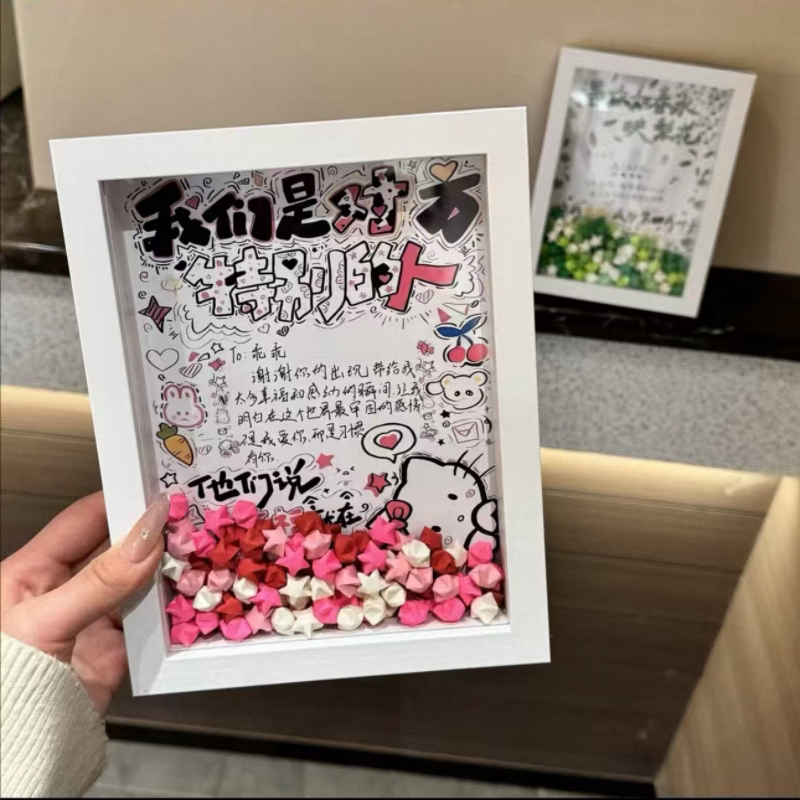 我们是对方
特别的人
To: 乖乖
谢谢你的出现 带给我
太多幸福和感动的瞬间.让我
明白在这个世界最牢固的感情
不是我爱你.而是习惯
有你.
他们说
映梨花